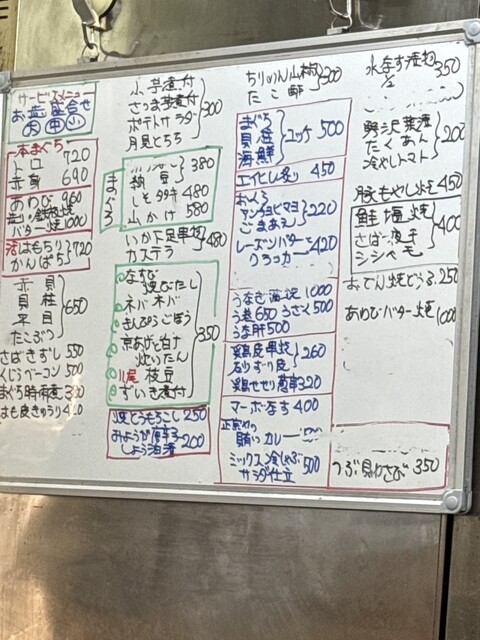 サービスメニュー
お造り盛合せ
大 中 小
本まぐろ
トロ 720
赤身 690
あわび 960
バター焼 1000
活はもちり 720
かんぱち
赤貝
貝柱
平目
たこぶつ
650
さばきずし 550
くじらベーコン 500
まぐろ時雨煮
はも皮きゅうり
小芋煮付
さつま芋煮付
ポテトサラダ
月見とろろ
300
まぐろ
380
納豆
しそタタキ 480
山かけ 580
いか下足串揚
カステラ
480
なすび
煮びたし
ネバネバ
きんぴらごぼう
京あげと白ナ
炊いたん
枝豆
ずいき煮付
350
焼とうもろこし 250
みょうが
しょう油漬
200
ちりめん山椒
300
まぐろ
貝柱
海鮮
ユッケ 500
エイヒレ炙り 450
おくら
アンチョビマヨ
ごまあえ
220
レーズンバター
クラッカー
420
うなぎ 1000
う巻 650 うざく 500
う肝 500
鶏皮串焼
砂ずり炙
260
鶏せせり 320
マーボなす 400
賄いカレー
ミックス冷しゃぶ
サラダ仕立
500
水なす浅漬
1/2
350
野沢菜漬
たくあん
冷やしトマト
200
豚もやし炒 450
鮭塩焼
さば
シシャモ
400
おでん焼どうふ 250
あわびバター焼 1000
つぶ貝わさび 350